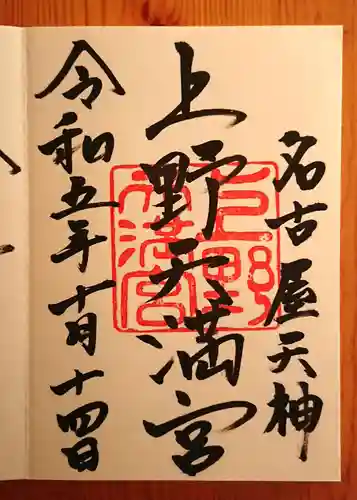 名古屋天神
上野天満宮
令和五年十月十四日
上野
天満宮